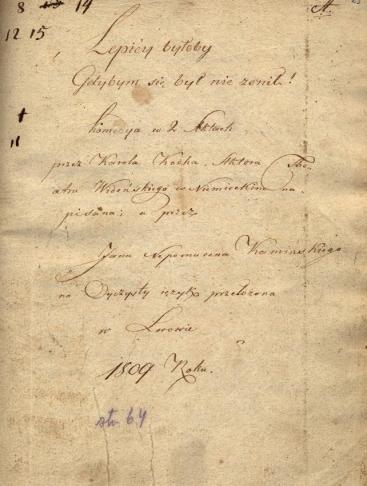 8 14
12 15
Lepiey byłoby
Gdybym się był nie żenił!
Komedya w 2 Aktach
przez Karola Kocha, Aktora Te-
atru Wideńskiego w Niemieckim na-
pisana; a przez
Jana Nepomucena Kamińskiego
na Oyczysty ięzyk przełożona
w Lwowie
1809 Roku.
str. 64